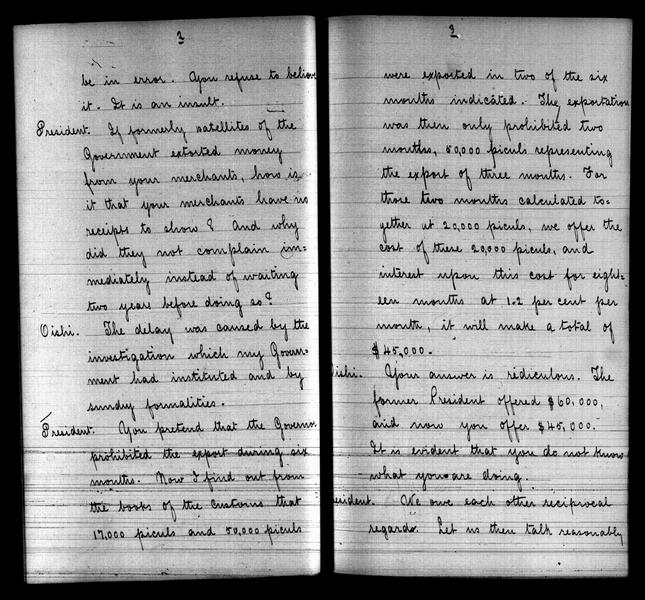 2
be in error. You refuse to believe
it. It is an insult.
President. If formerly satellites of the
Government extorted money
from your merchants, how is
it that your merchants have no
receipts to show? And why
did they not complain im=
mediately instead of waiting
two years before doing so?
Oishi. The delay was caused by the
investigation which my Govern=
ment had instituted and by
sundry formalities.
President. You pretend that the Governor
prohibited the export during six
months. Now I find out from
the books of the Customs that
17,000 piculs and 50,000 piculs
3
were exported in two of the six
months indicated. The exportation
was then only prohibited two
months, 50,000 piculs representing
the export of three months. For
those two months calculated to=
gether at 20,000 piculs, we offer the
cost of these 20,000 piculs, and
interest upon this cost for eight=
een months at 1.2 per cent per
month, it will make a total of
$45,000.
Oishi. Your answer is ridiculous. The
former President offered $60,000,
and now you offer $45,000.
It is evident that you do not know
what you are doing.
resident. We owe each other reciprocal
regards. Let us then talk reasonably